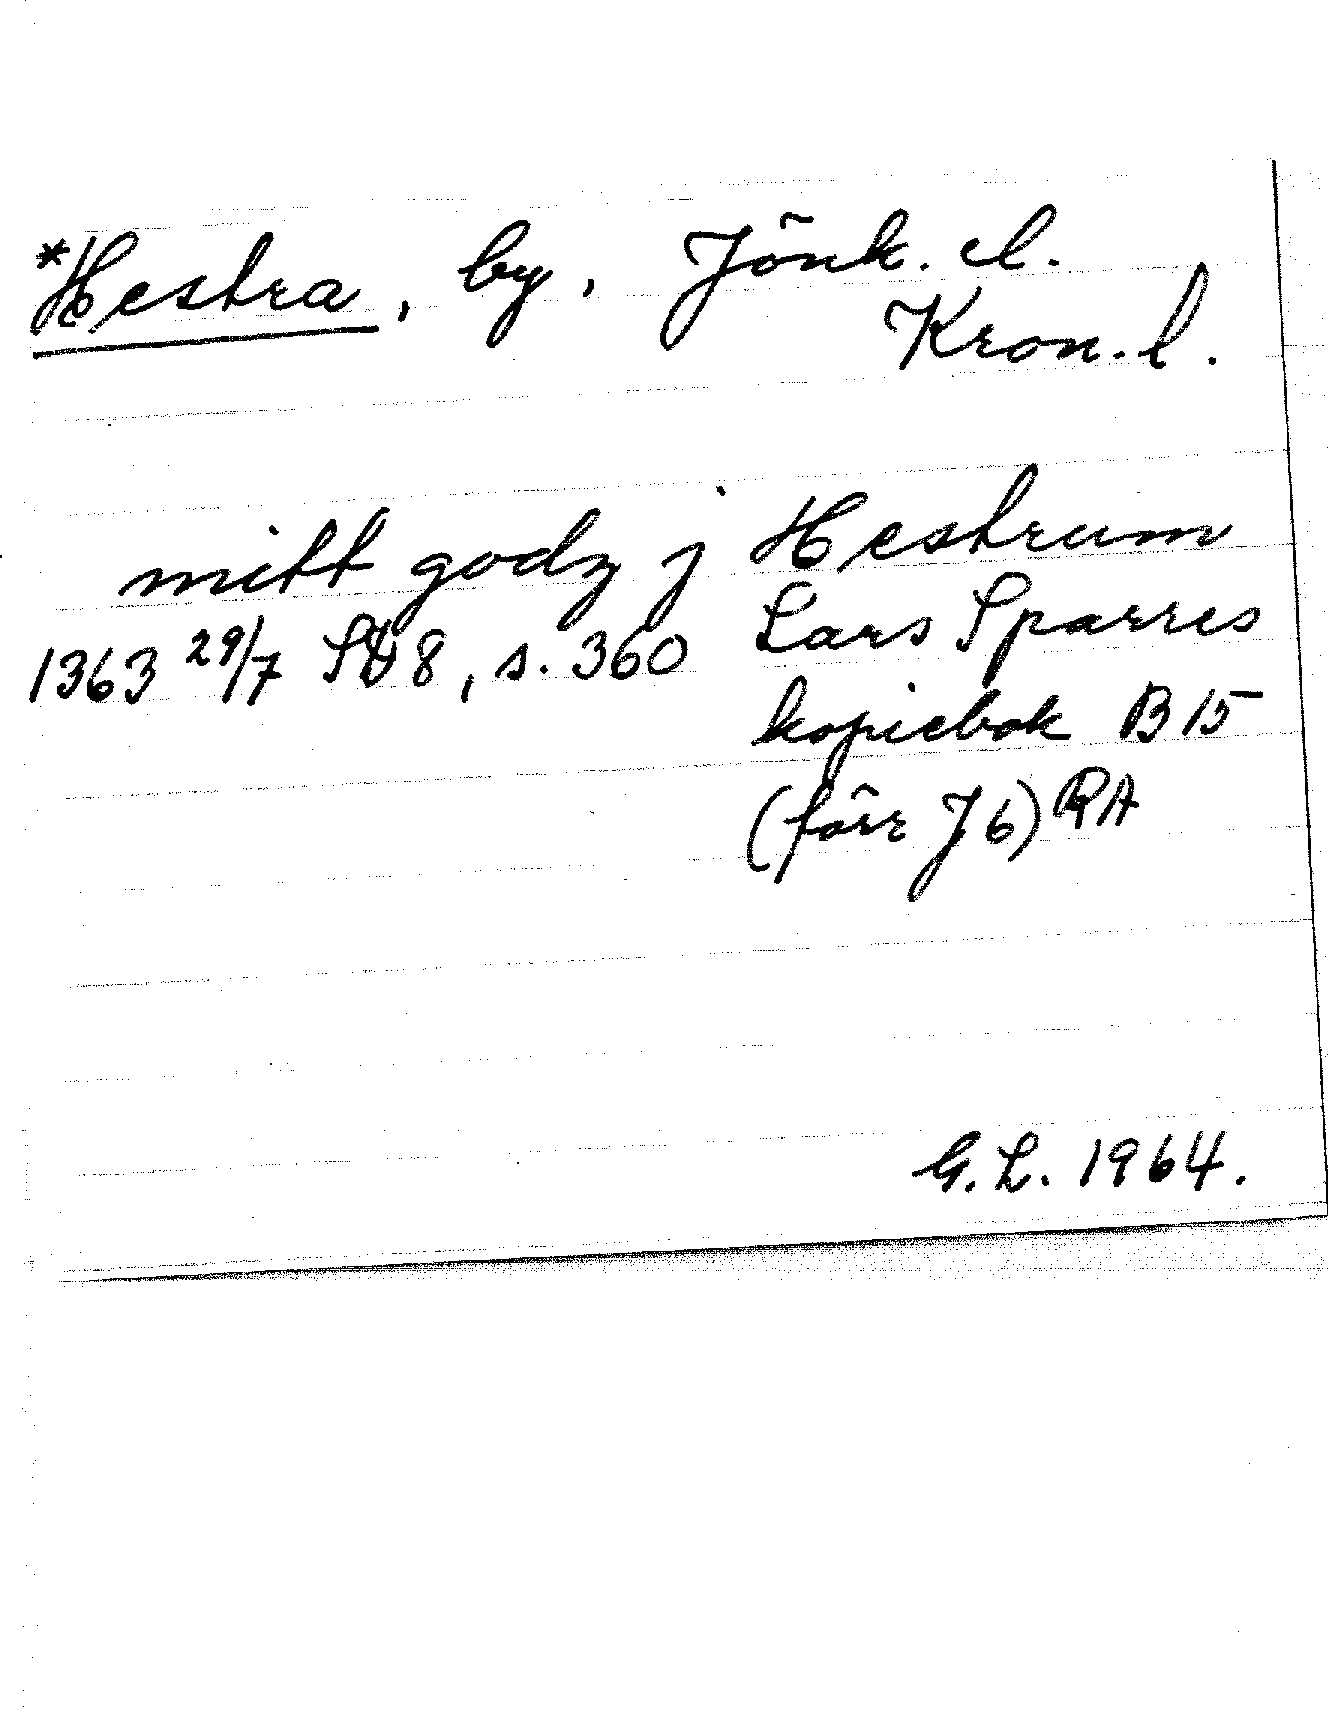 *Hestra, by, Jönk. el.
Kron. l.
mitt godz j Hestrum
1363 29/7 SD 8, s. 360 Lars Sparres
kopiebok B 15
(förr J 6) RA
G. L. 1964.